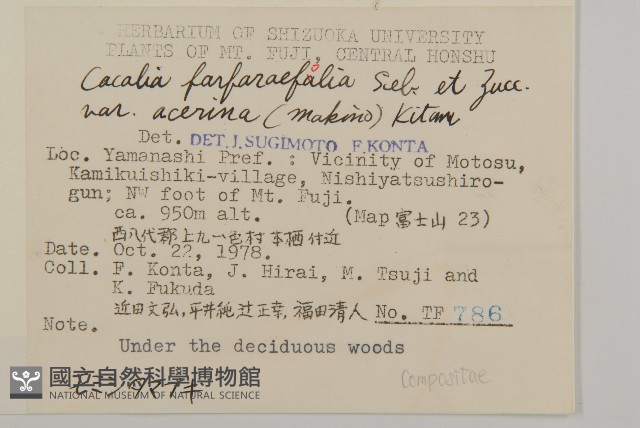 HERBARIUM OF SHIZUOKA UNIVERSITY
PLANTS OF MT. FUJI, CENTRAL HONSHU
Cacalia farfaraefolia Sieb. et Zucc.
var. acerina (Makino) Kitam
Det. DET. J. SUGIMOTO F. KONTA
Loc. Yamanashi Pref. : Vicinity of Motosu,
Kamikuishiki-village, Nishiyatsushiro-
gun; NW foot of Mt. Fuji.
ca. 950m alt. (Map 富士山 23)
西八代郡上九一色村本栖付近
Date. Oct. 22, 1978.
Coll. F. Konta, J. Hirai, M. Tsuji and
K. Fukuda
近田文弘, 平井純, 辻正幸, 福田清人 No. TF 786
Note.
Under the deciduous woods
國立自然科學博物館
NATIONAL MUSEUM OF NATURAL SCIENCE
Compositae